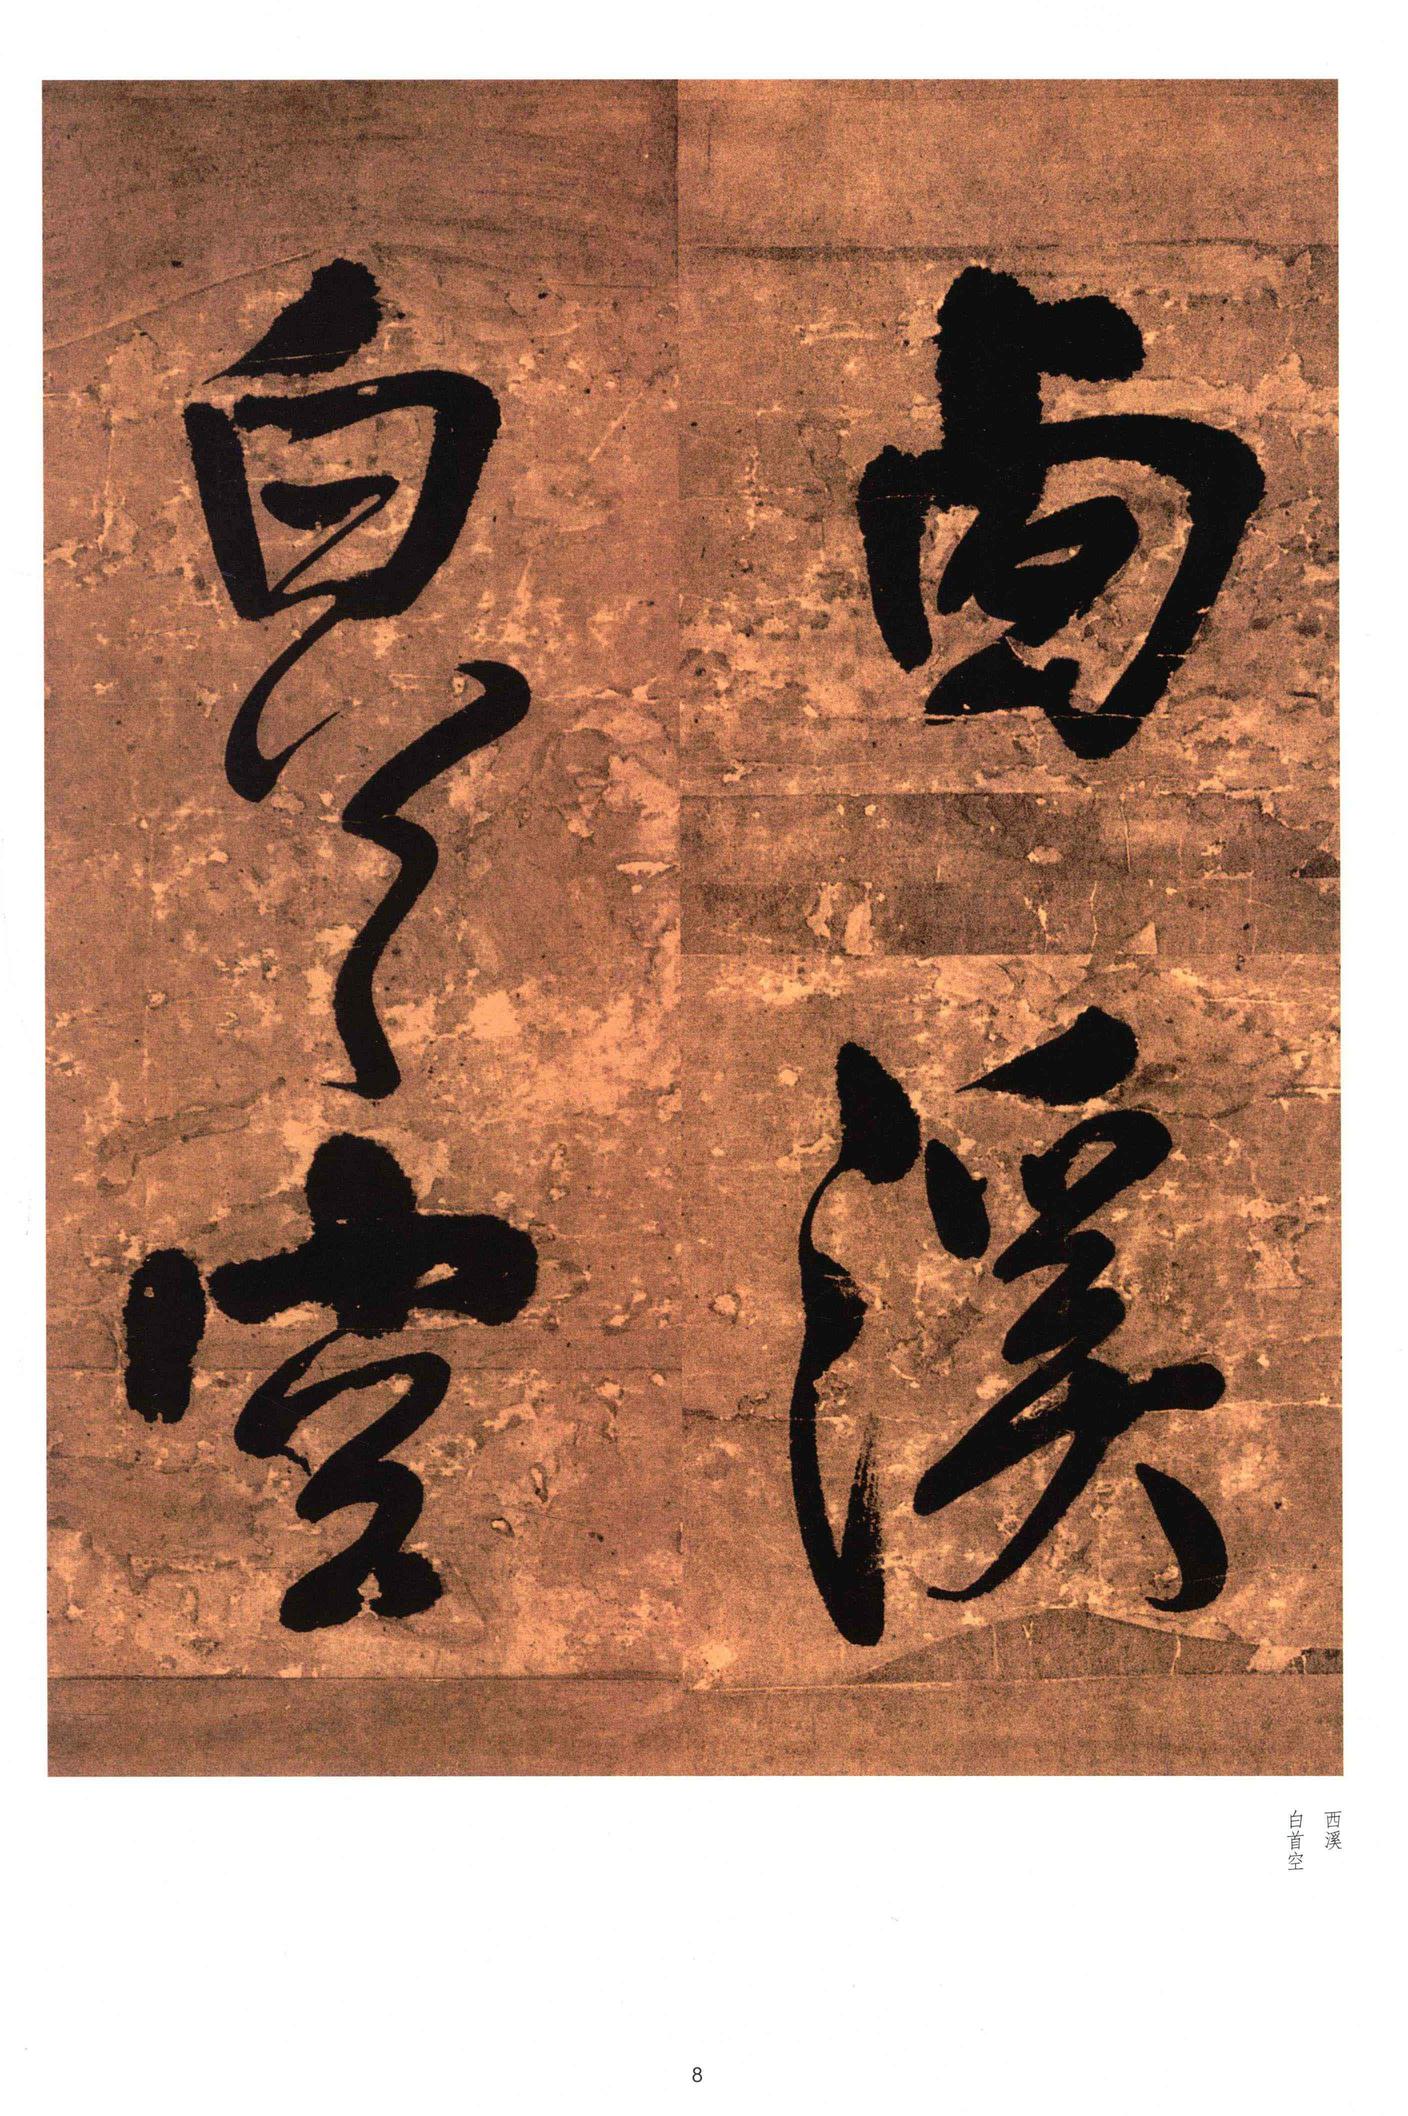 西溪
白首空
西溪
白首空
8